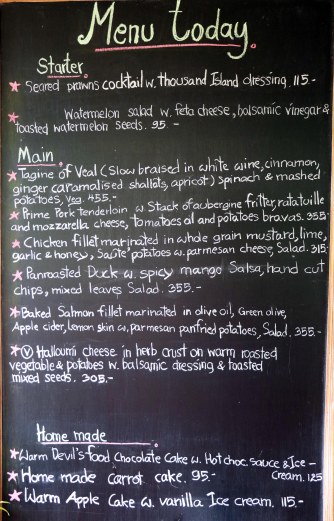 Menu today.
Starter.
★ Seared prawns cocktail w. thousand Island dressing. 115.-
★ Watermelon salad w. feta cheese, balsamic vinegar &
toasted watermelon seeds. 95.-
Main.
★ Tagine of Veal (Slow braised in white wine, cinnamon,
ginger caramalised shallots, apricot) spinach & mashed
potatoes, veg. 455.-
★ Prime Pork tenderloin w Stack of aubergine fritter, ratatuille
and mozzarella cheese, tomatoes oil and potatoes bravas. 355-
★ Chicken fillet marinated in whole grain mustard, lime,
garlic & honey, Sauté potatoes w. parmesan cheese, Salad. 315-
★ Panroasted Duck w. spicy mango Salsa, hand cut
chips, mixed leaves Salad. 355.-
★ Baked Salmon fillet marinated in olive oil, Green olive,
Apple cider, lemon skin w. parmesan panfried potatoes, Salad. 355.-
★ Ⓥ Halloumi cheese in herb crust on warm roasted
vegetable & potatoes w. balsamic dressing & toasted
mixed seeds. 305.-
Home made
★ Warm Devil's food Chocolate Cake w. Hot choc. sauce & Ice-
cream. 125
★ Home made carrot cake. 95.-
★ Warm Apple Cake w. vanilla Ice cream. 115.-